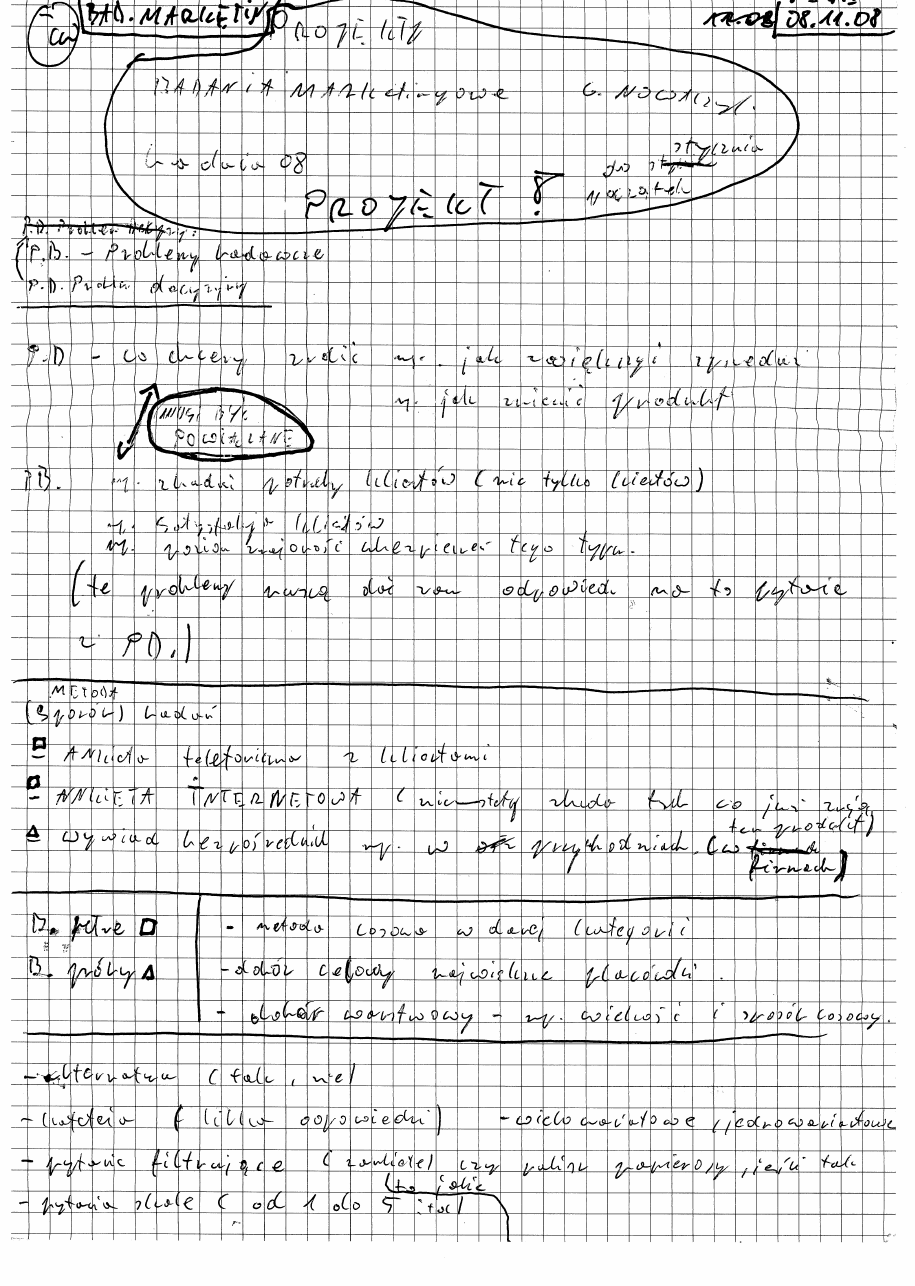 BAD. MARKETING 08.11.08
PROJEKTY
BADANIA MARKetingowe G.
do dnia 08 stycznia
PROJEKT !
P.D. Problem
P.B. - Problemy badawcze
P.D. Problem decyzyjny
P.D - co chcemy zrobić np. jak zwiększyć sprzedaż
np. jak zmienić produkt
MUSI BYĆ
POWIĄZANE
P.B. np. zbadać potrzeby klientów (nie tylko klientów)
np. Satysfakcja klientów
np. poziom znajomość ubezpieczeń tego typu.
(te problemy muszą dać nam odpowiedź na to pytanie
z PD.)
METODA
(Sposób) badań
ANkieta telefoniczna z klientami
ANKIETA INTERNETOWA (niestety zbada tych co już znają
ten produkt)
wywiad bezpośredni np. w przychodniach. (w
firmach)
B. pełne - metoda losowa w danej kategorii
B. próby - dobór celowy największe placówki.
- dobór warstwowy - np. wielkość i sposób losowy.
- alternatywa (tak, nie)
- kafeteria (kilka odpowiedzi) - wielowariantowe, jednowariantowe
- pytanie filtrujące (zamknięte) czy palisz papierosy, jeśli tak
(to jakie
- pytania skale (od 1 do 5 itd)